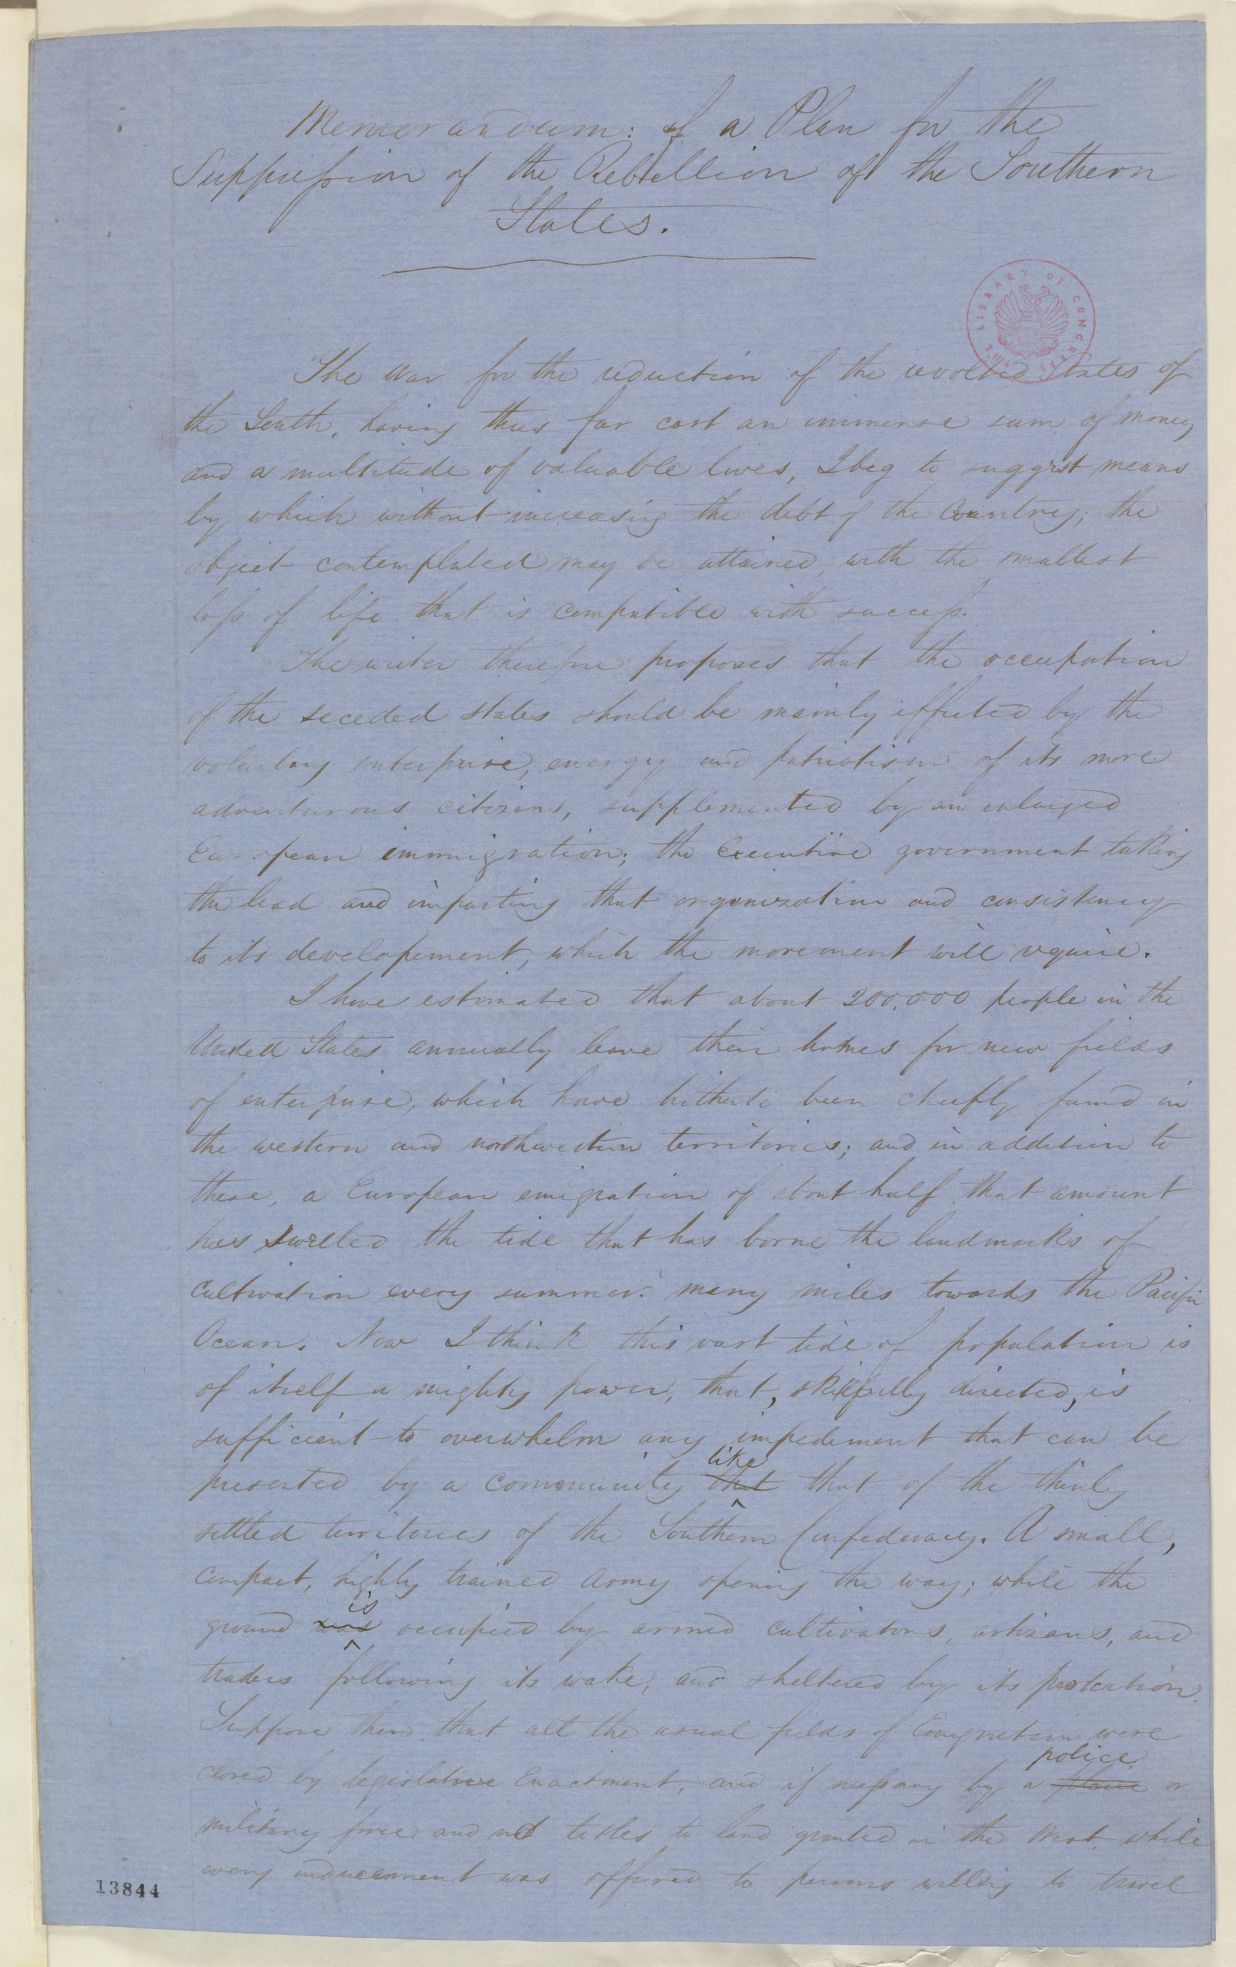 Memorandum: of a Plan for the
Suppression of the Rebellion of the Southern
States.
LIBRARY OF CONGRESS
The War for the reduction of the revolted States of
the South, having thus far cost an immense sum of money,
and a multitude of valuable lives, I beg to suggest means
by which without increasing the debt of the Country, the
object contemplated may be attained, with the smallest
loss of life that is compatible with success.
The writer therefore proposes that the occupation
of the seceded states should be mainly effected by the
voluntary enterprise, energy and patriotism of its more
adventurous citizens, supplemented by an enlarged
European immigration; the Executive government taking
the lead and imparting that organization and consistency
to its developement, which the movement will require.
I have estimated that about 200,000 people in the
United States annually leave their homes for new fields
of enterprise, which have hitherto been chiefly found in
the western and northwestern territories; and in addition to
these, a European emigration of about half that amount
has swelled the tide that has borne the landmarks of
cultivation every summer many miles towards the Pacific
Ocean. Now I think this vast tide of population is
of itself a mighty power, that, skilfully directed, is
sufficient to overwhelm any impediment that can be
presented by a community that like that of the thinly
settled territories of the Southern Confederacy. A small,
compact, highly trained Army opening the way; while the
ground was is occupied by armed cultivators, artizans, and
traders following its wake, and sheltered by its protection.
Suppose then that all the usual fields of Emigration were
closed by legislative Enactment, and if necessary by a police or
military force and not titles to land granted in the West while
every inducement was offered to persons willing to travel
13844